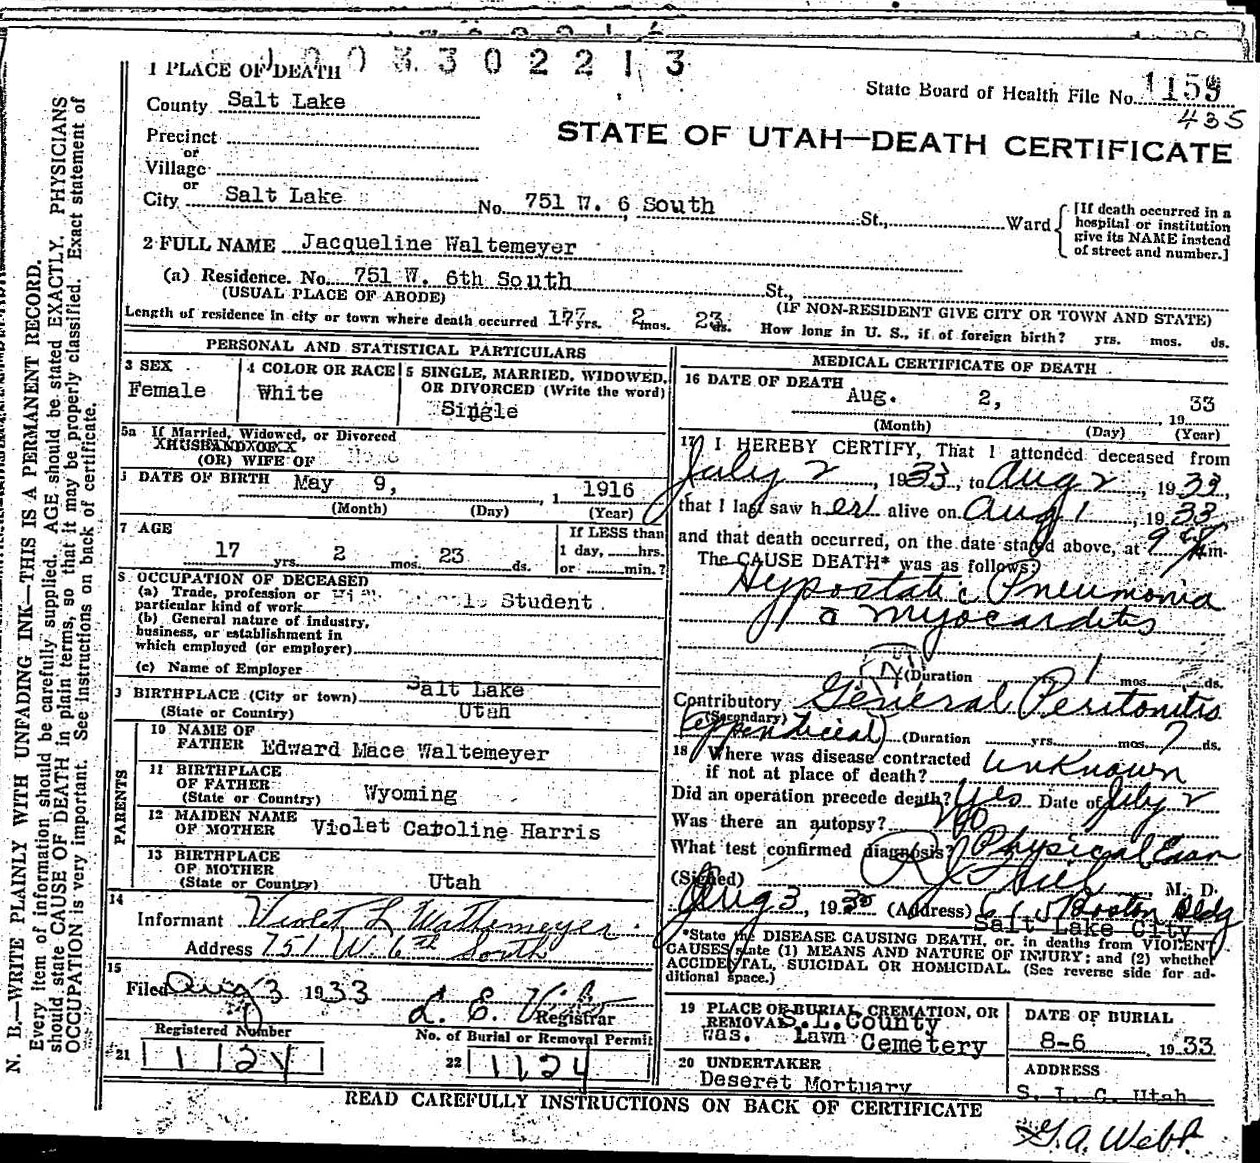 1 0 0 3 3 0 2 2 1 3
1 PLACE OF DEATH
State Board of Health File No. 1159
435
County Salt Lake
STATE OF UTAH—DEATH CERTIFICATE
Precinct
or
Village
or
City Salt Lake No. 751 W. 6 South St., Ward
[If death occurred in a
hospital or institution
give its NAME instead
of street and number.]
2 FULL NAME Jacqueline Waltemeyer
(a) Residence. No. 751 W. 6th South St.,
(USUAL PLACE OF ABODE) (IF NON-RESIDENT GIVE CITY OR TOWN AND STATE)
Length of residence in city or town where death occurred 17 yrs. 2 mos. 23 ds. How long in U. S., if of foreign birth? yrs. mos. ds.
PERSONAL AND STATISTICAL PARTICULARS
3 SEX
Female
4 COLOR OR RACE
White
5 SINGLE, MARRIED, WIDOWED,
OR DIVORCED (Write the word)
Single
5a If Married, Widowed, or Divorced
XHUSBANDXOFXX
(OR) WIFE OF
DATE OF BIRTH May 9, 1 1916
(Month) (Day) (Year)
7 AGE
17 yrs. 2 mos. 23 ds.
If LESS than
1 day, hrs.
or min.?
8 OCCUPATION OF DECEASED
(a) Trade, profession or
particular kind of work Student
(b) General nature of industry,
business, or establishment in
which employed (or employer)
(c) Name of Employer
BIRTHPLACE (City or town) Salt Lake
(State or Country) Utah
PARENTS
10 NAME OF
FATHER Edward Mace Waltemeyer
11 BIRTHPLACE
OF FATHER
(State or Country) Wyoming
12 MAIDEN NAME
OF MOTHER Violet Caroline Harris
13 BIRTHPLACE
OF MOTHER
(State or Country) Utah
14
Informant Violet L Waltemeyer
Address 751 W. 6th South
15
Filed Aug 3 1933 L. E.
Registrar
Registered Number
No. of Burial or Removal Permit
21 1124
22 1124
MEDICAL CERTIFICATE OF DEATH
16 DATE OF DEATH
Aug. 2, 19 33
(Month) (Day) (Year)
17 I HEREBY CERTIFY, That I attended deceased from
July 2, 1933, to Aug 2, 1933,
that I last saw her alive on Aug 1, 1933
and that death occurred, on the date stated above, at 9 m.
The CAUSE DEATH* was as follows:
Hypostatic Pneumonia
a Myocarditis
(Duration 1 mos. ds.
Contributory General Peritonitis
(Secondary)
(appendiceal) (Duration yrs. mos. 7 ds.
18 Where was disease contracted
if not at place of death? Unknown
Did an operation precede death? Yes Date of July 2
Was there an autopsy? No
What test confirmed diagnosis? Physical Exam
(Signed) M. D.
Aug 3, 1933 (Address) 615 Boston Bldg
Salt Lake City
*State the DISEASE CAUSING DEATH, or, in deaths from VIOLENT
CAUSES state (1) MEANS AND NATURE OF INJURY; and (2) whether
ACCIDENTAL, SUICIDAL OR HOMICIDAL. (See reverse side for ad-
ditional space.)
19 PLACE OF BURIAL, CREMATION, OR
REMOVAL S. L. County
Was. Lawn Cemetery
DATE OF BURIAL
8-6 1933
20 UNDERTAKER
Deseret Mortuary
ADDRESS
S. L. C. Utah
READ CAREFULLY INSTRUCTIONS ON BACK OF CERTIFICATE
G. A. Webb
N. B.—WRITE PLAINLY WITH UNFADING INK—THIS IS A PERMANENT RECORD.
Every item of information should be carefully supplied. AGE should be stated EXACTLY. PHYSICIANS
should state CAUSE OF DEATH in plain terms, so that it may be properly classified. Exact statement of
OCCUPATION is very important. See instructions on back of certificate.